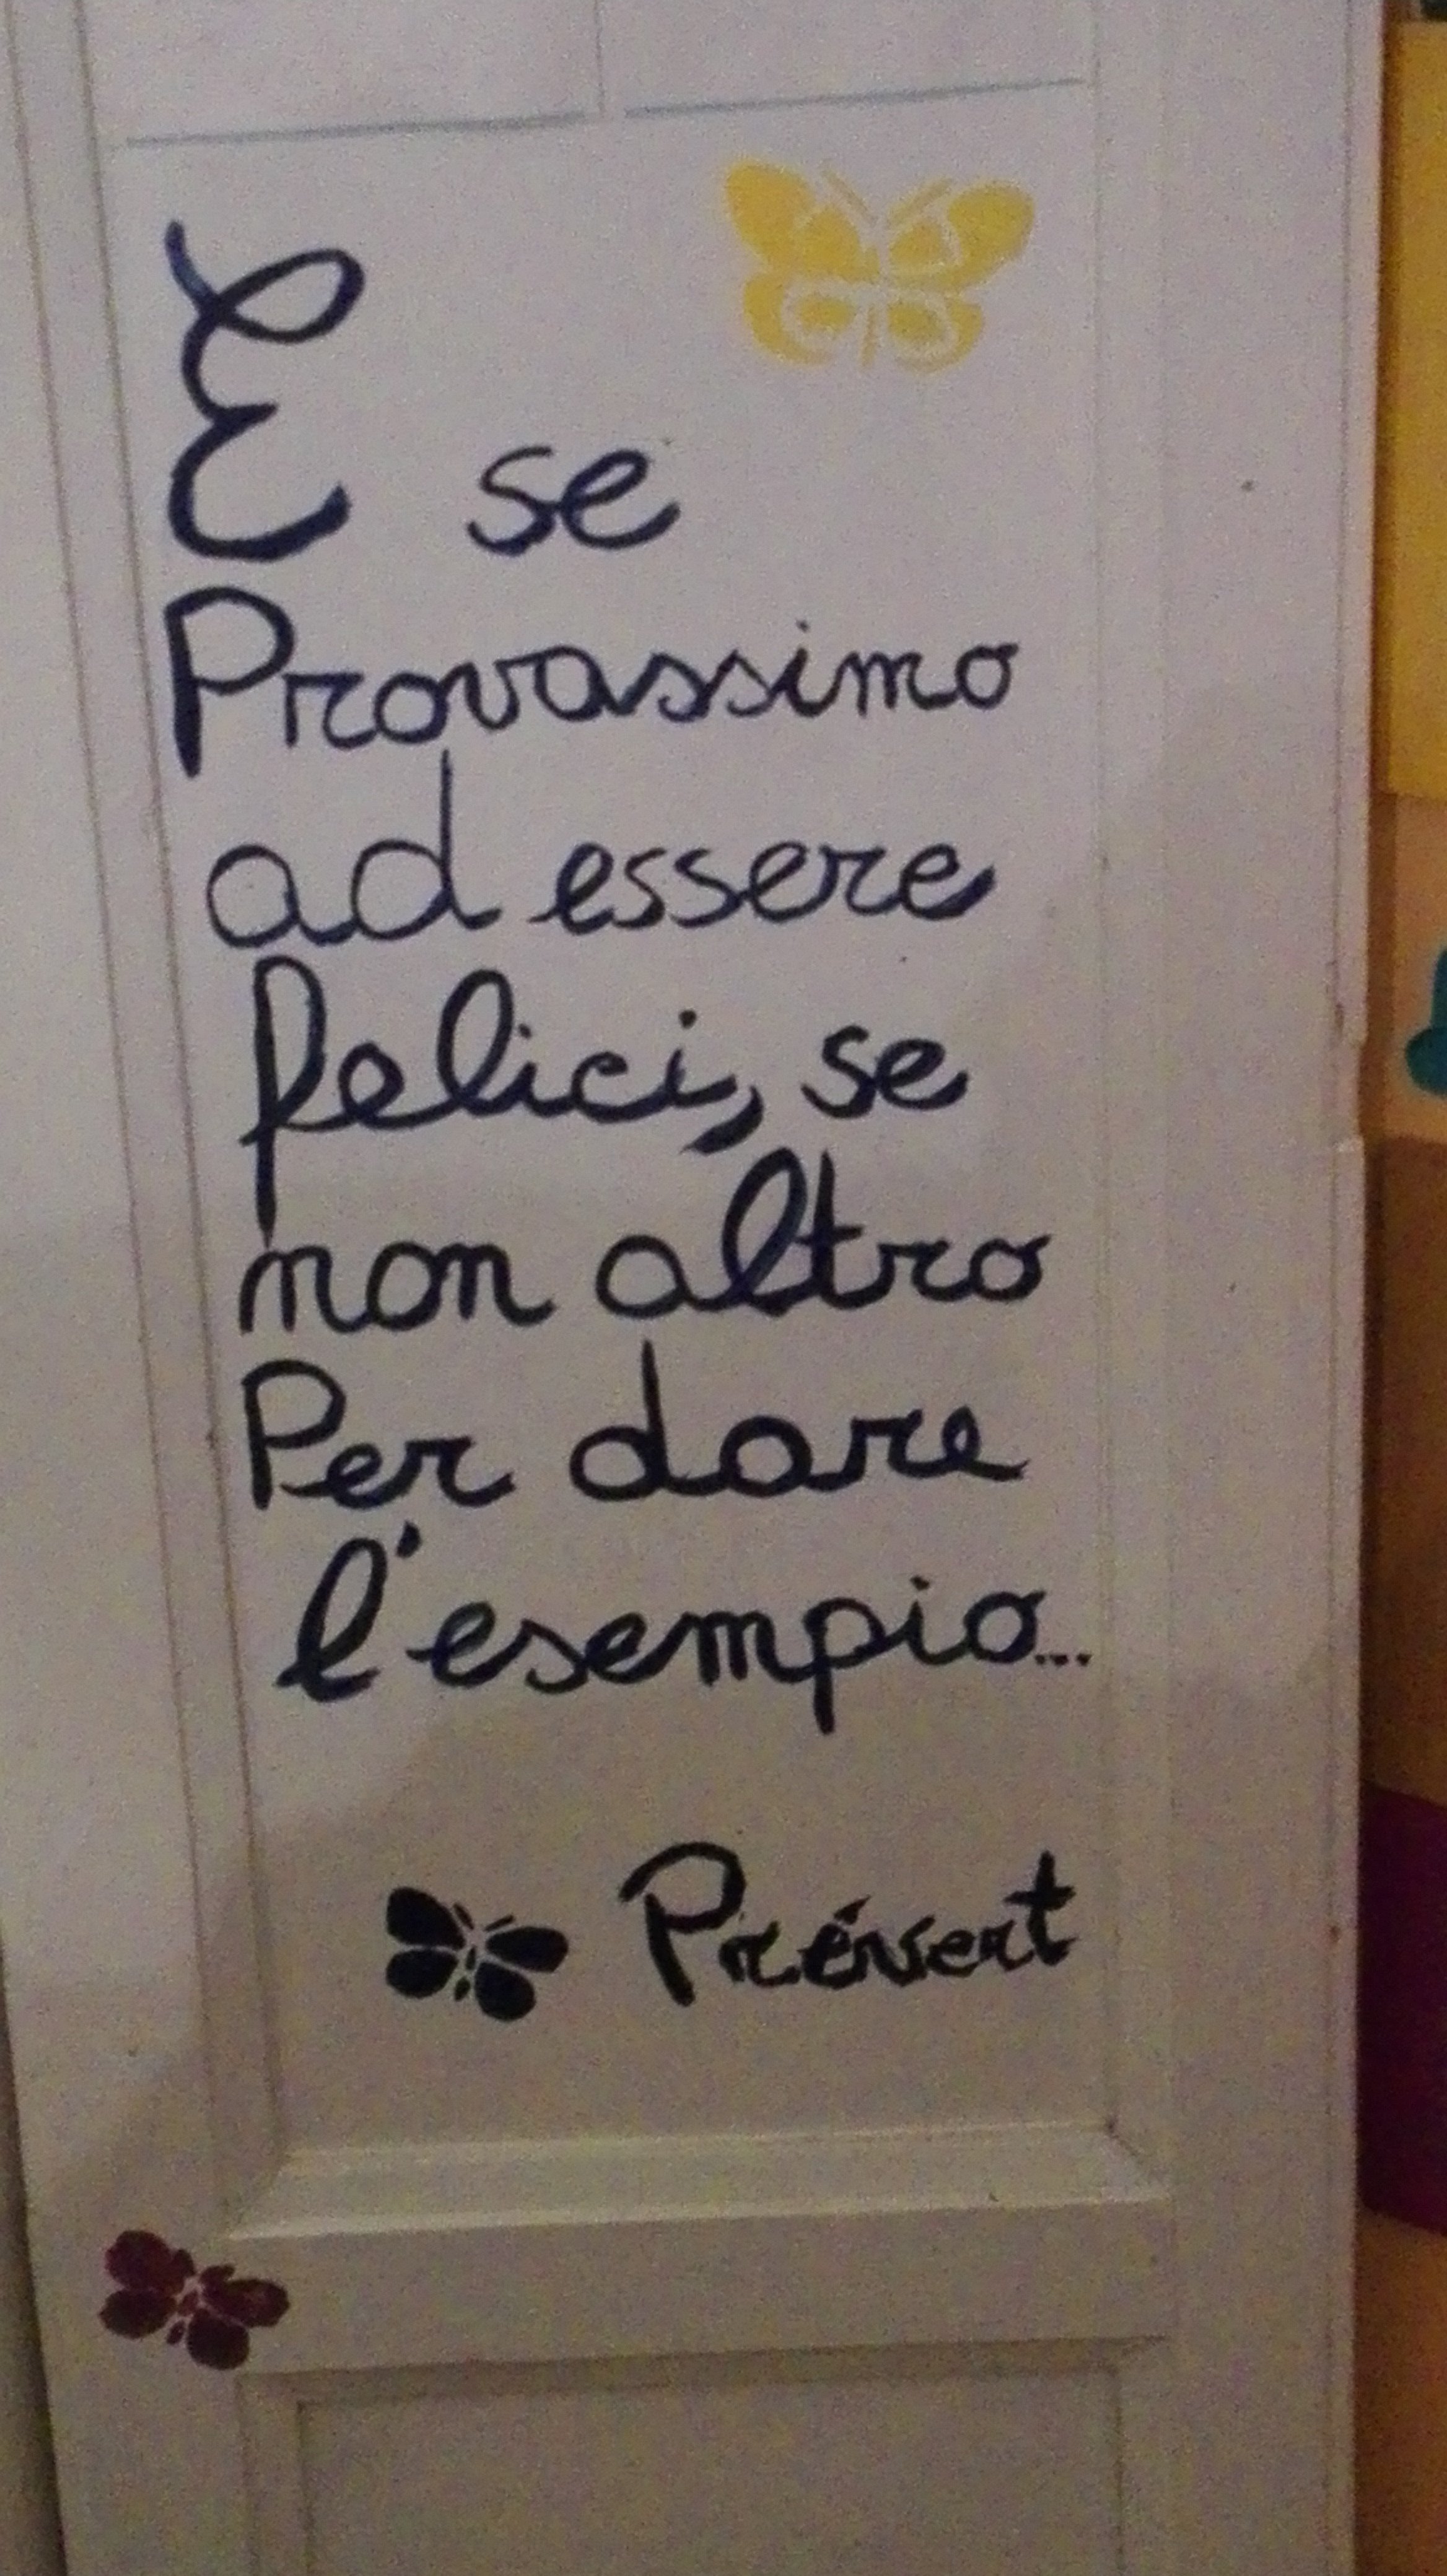 E se
Provassimo
ad essere
felici, se
non altro
Per dare
l'esempio...
Prévert